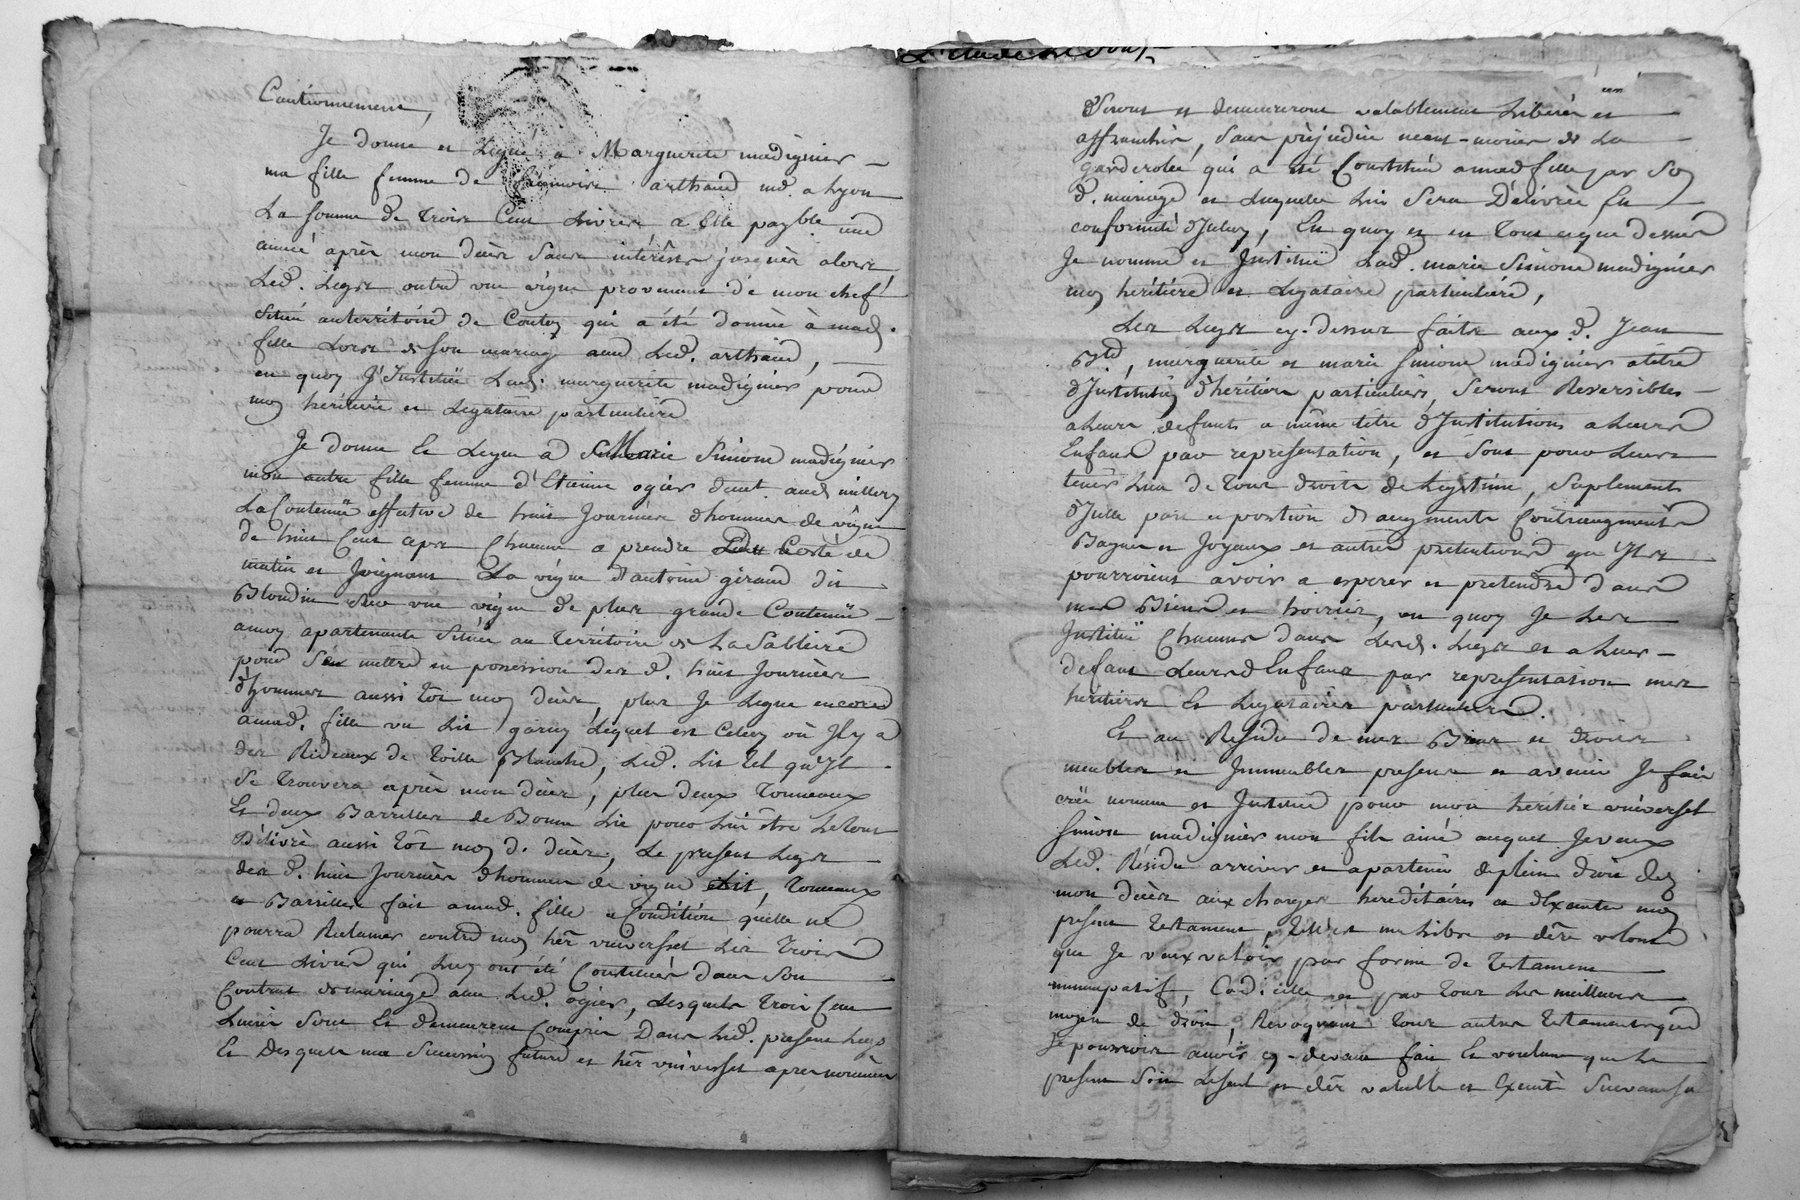 Cautionnement,
Je donne et Legue a Marguerite madignier
ma fille femme de arthaud md. a Lyon
La somme de trois Cent Livres a Elle payble une
année après mon décès Sans intérêts jusques alors
Led. Legs outre une vigne provenant de mon chef
Située au territoire de qui a été donnée à mad.
fille Lors de son mariage avec Led. arthaud,
en quoy J'Institüe Lad. marguerite madignier pour
moy heritiere et Legataire particulière
Je donne Et Legue a Marie Simone madignier
mon autre fille femme d'Etienne ogier demt. aud. millery
La Contenüe effective de huit Journées d'hommes de vigne
de huit Cent ceps Chacune a prendre du Costé de
matin et Joignant La vigne d'antoine giraud dit
Blondin dans une vigne de plus grande Contenüe
a moy apartenante Située au territoire de La Sabliere
pour s'en mettre en possession des d. huit Journées
d'hommes aussi tot moy décès, plus Je Legue encore
a mad. fille un Lit garny Lequel est Celuy où Il y a
des Rideaux de toille Blanche, Led. Lit tel qu'Il
se trouvera après mon décès, plus deux tonneaux
Et deux Barrilles de Bonne Lie pour Lui être Le tout
Délivré aussi tôt moy d. décès, Le present Legs
des d. huit Journées d'hommes de vigne Lit, tonneaux
et Barrilles fait a mad. fille a Condition qu'elle ne
pourra Reclamer contre moy hér. universel Les trois
Cent Livres qui Luy ont été Constitués dans son
Contrat de mariage avec Led. ogier, Lesquels trois Cent
Livres sont Et demeurent Compris Dans Led. present Legs
Et Desquels ma Succession future et hér. universel apres nommé
Seront et demeureront valablement Libérés et
affranchis, Sans préjudice neant-moins de La
garderobe qui a été Constitué a mad. fille par Son
d. mariage et Laquelle Lui Sera Délivrée En
conformité d'Iceluy, En quoy et en tout ce que dessus
Je nomme et Institüe Lad. marie Simone madignier
moy heritiere et Legataire particuliere,
Les Legs cy-dessus faits aux d. Jean
Bte., marguerite et marie Simone madignier a titre
d'Institution d'heritiers particuliers, Seront Reversibles
a Leurs defauts a même titre d'Institutions a Leurs
Enfans par representation, et sont pour Leurs
tenir Lieu de tous droits de Legitime, Suplements
d'Icelle part et portion d'augments Contraugments
Bagues et Joyaux et autres pretentions qu'Ils
pourroient avoir a esperer et pretendre dans
mes Biens et hoirie, en quoy Je Les
Institüe Chacuns dans Lesd. Legs et a Leur
defaut Leursd. Enfans par representation mes
heritiers Et Legataires particuliers.
Et au Residu de mes Biens et droits
meubles et Immeubles presens et avenir Je fais
crée nomme et Institüe pour mon heritier universel
Simon madignier mon fils ainé auquel Je veux
Led. Résidu arriver et apartenir de plein droit dez
mon décès aux charges hereditaires et d'Executer moy
present testament, tel est ma Libre et dére. volonté
que Je veux valoir par forme de testament
nuncupatif, Codicille et par tous Les meilleurs
moyen de droit, Revoquant tous autres testaments que
Je pourrois avoir cy-devant fait Et voulant que Le
present Soit Leseul et dér. valable et Executé Suivant sa